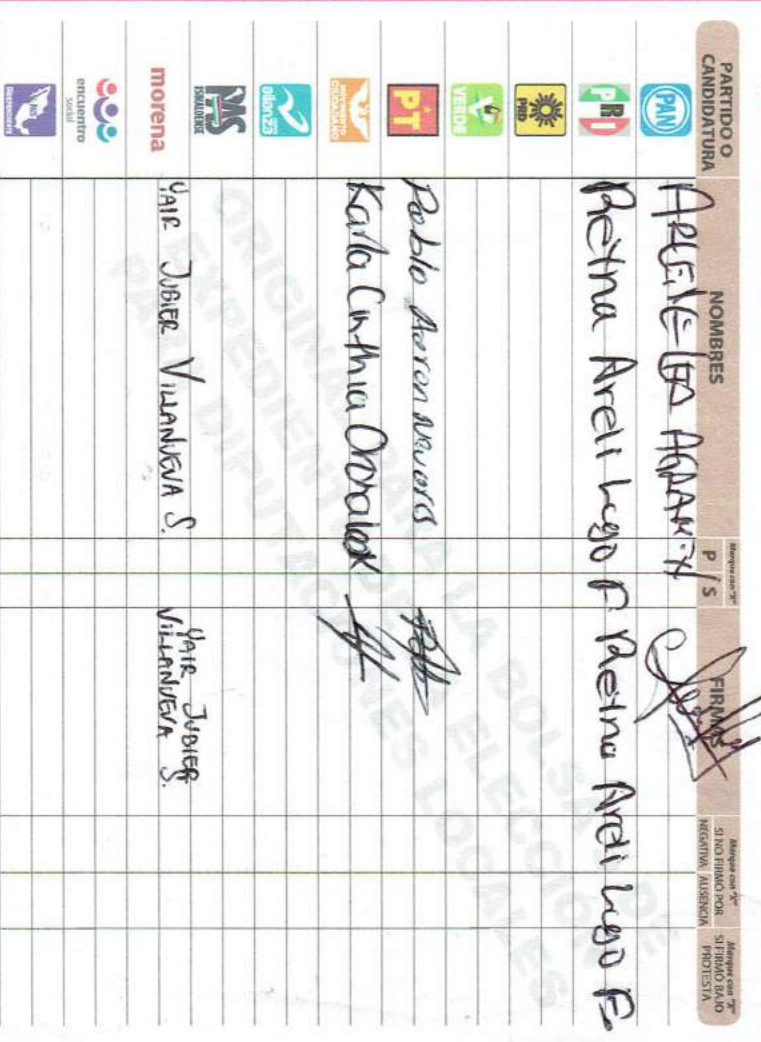 PARTIDO O CANDIDATURA
NOMBRES
Marque con "X"
P / S
FIRMAS
Marque con "X"
SI NO FIRMÓ POR
NEGATIVA AUSENCIA
Marque con "X"
SI FIRMÓ BAJO PROTESTA
PAN
PRI Reyna Areli Lugo F Reyna Areli Lugo F
PRD
VERDE
PT Pablo Aaron
MOVIMIENTO CIUDADANO Karla Cinthia
alianza
PAS
morena YAIR JUBIER VILLANUEVA S. YAIR JUBIER
VILLANUEVA S.
encuentro
social
INDEPENDIENTE
ORIGINAL PARA LA BOLSA DE
EXPEDIENTE DE LA ELECCIÓN
PARA DIPUTACIONES LOCALES